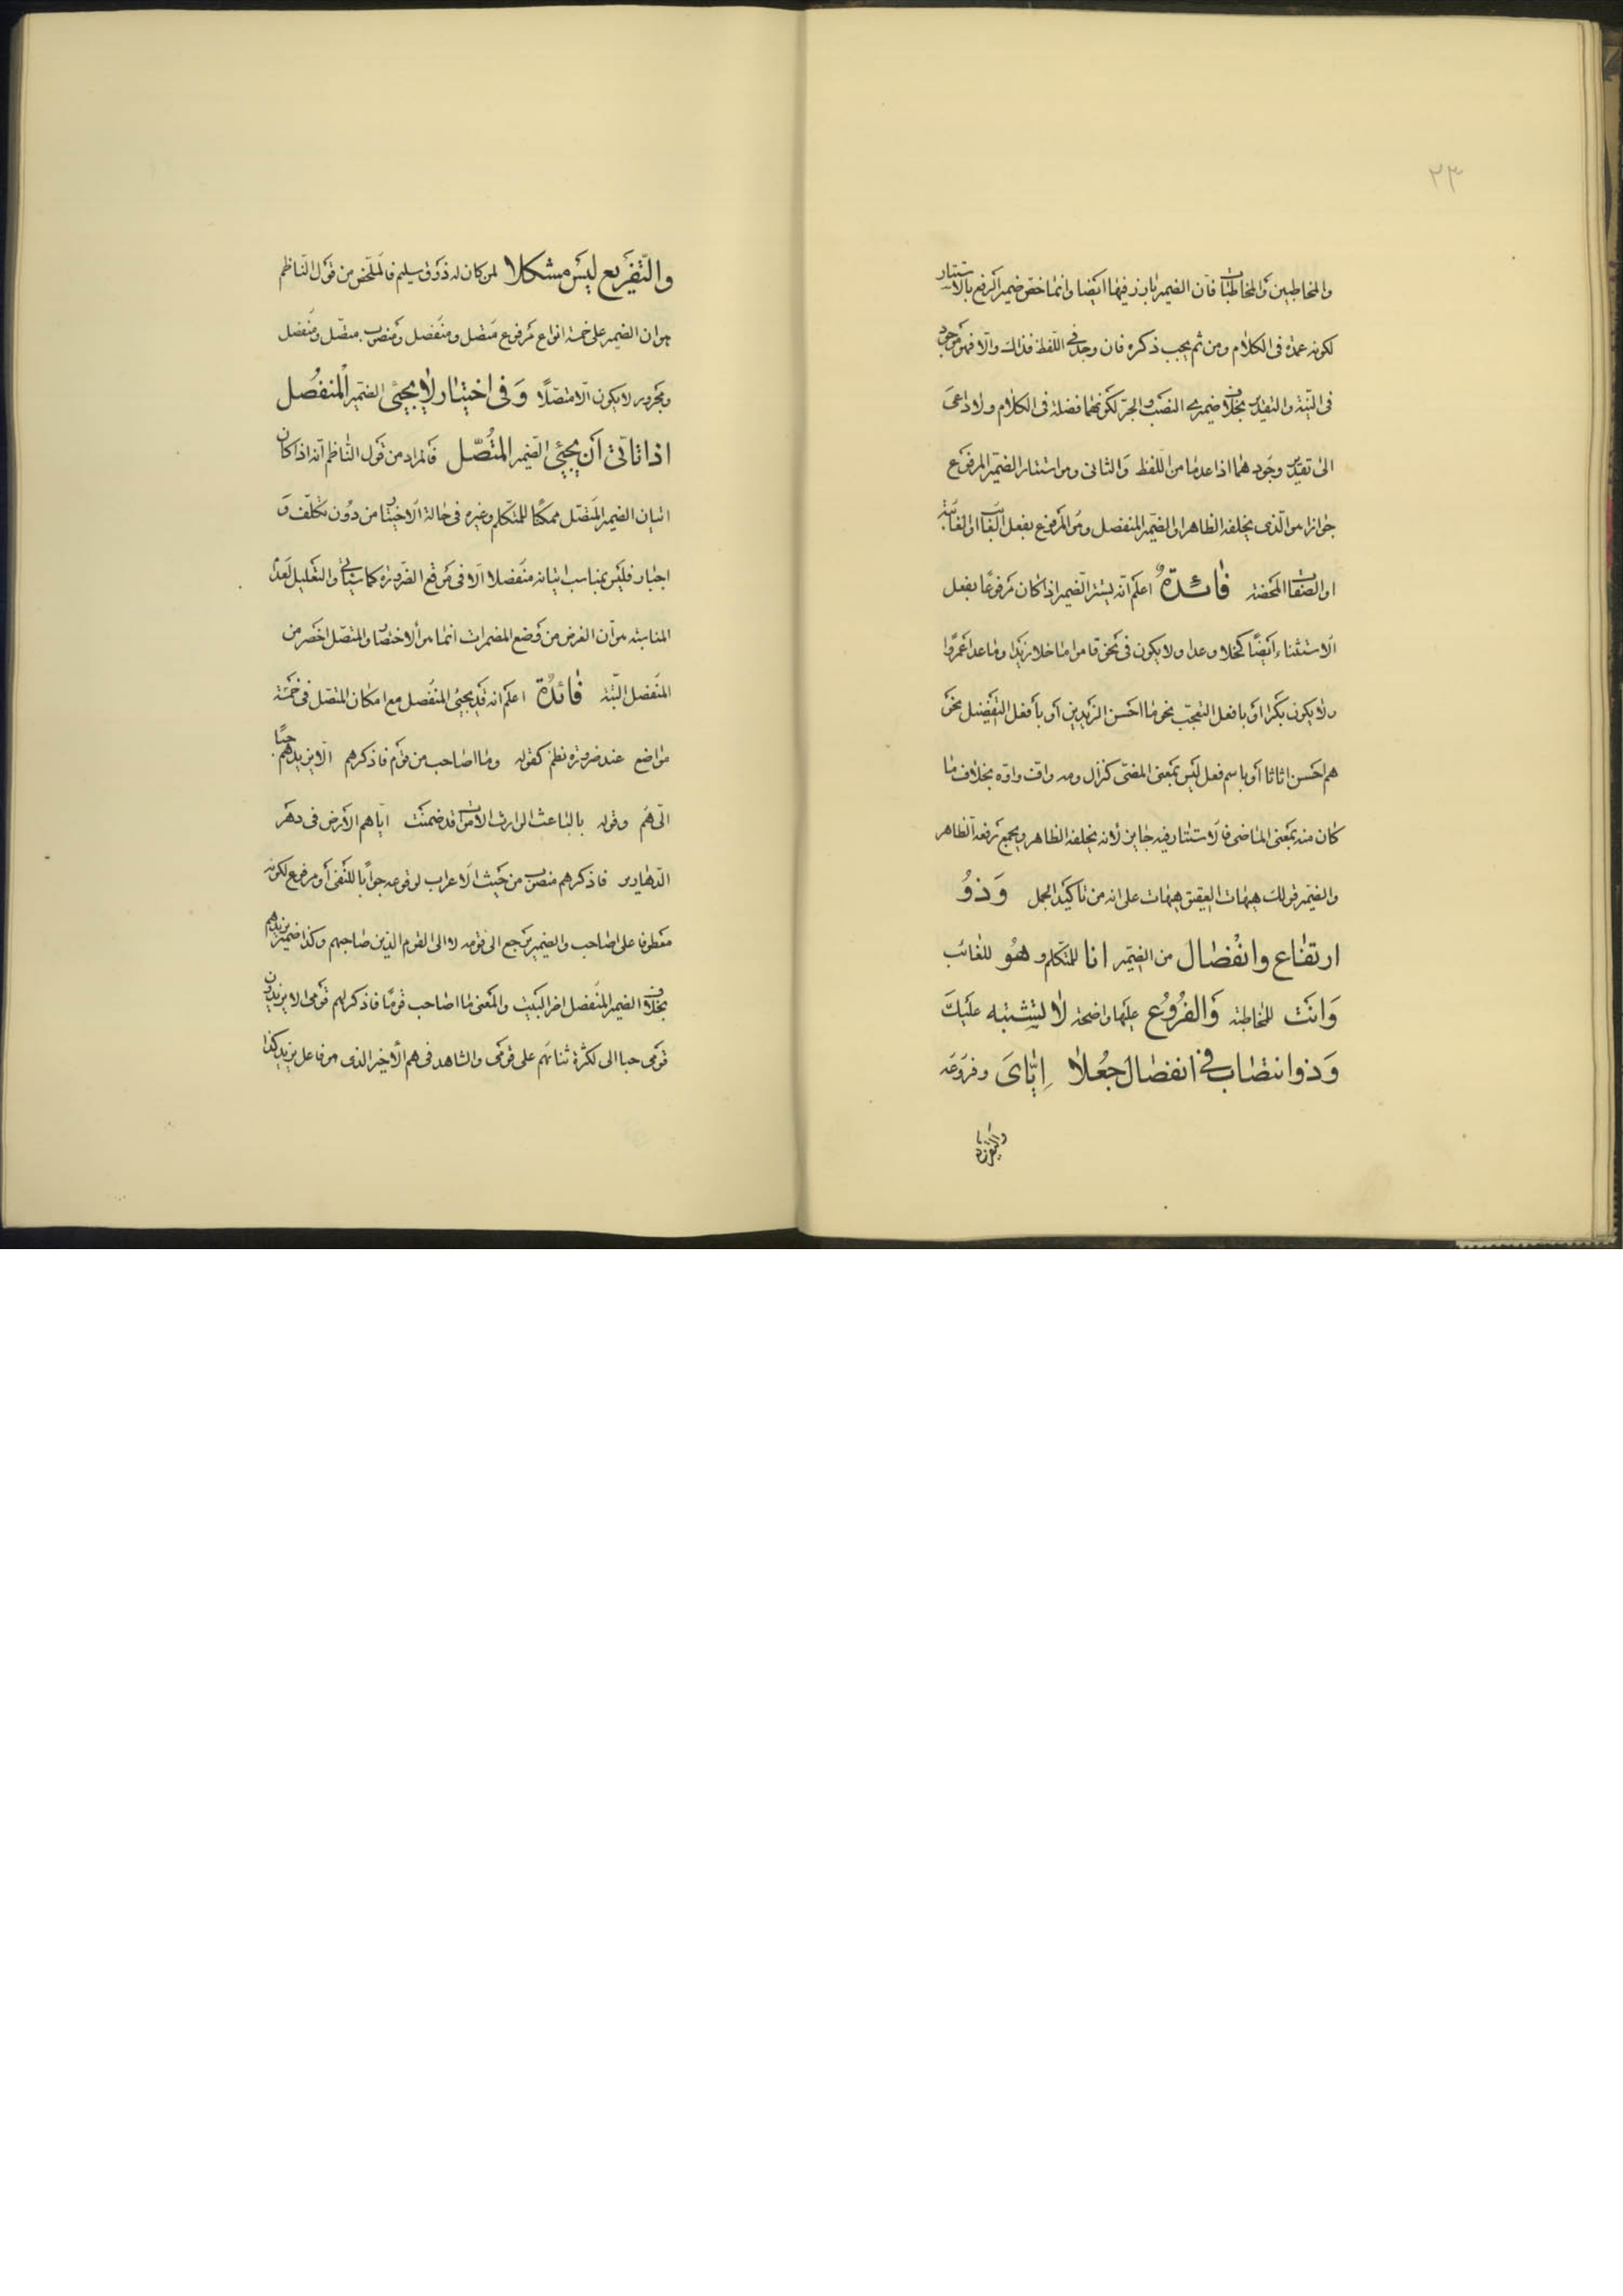 ٢٣
والمخاطبين والمخاطبات فان الضمير بارز فيها ايضا وانما خص ضمير الرفع بالاستتار
لكونه عمدة فى الكلام ومن ثم يجب ذكره فان وجد في اللفظ فذلك والا فهو موجود
فى النية والتقدير بخلاف ضميرى النصب والجر لكونهما فضلة فى الكلام ولا داعى
الى تقدير وجودهما اذا عدما من اللفظ والثانى وهو استتار الضمير المرفوع
جوازا هو الذى يخلفه الظاهر او الضمير المنفصل وهو المرفوع بفعل الغايب او الغايبة
او الصفات المحضة فائدة اعلم انه يستتر الضمير اذا كان مرفوعا بفعل
الاستثناء ايضا كخلا وعدا ولا يكون فى نحو قاموا ما خلا زيدا وما عدا عمروا
ولا يكون بكرا او بافعل التعجب نحو ما احسن الزيدين او بأفعل التفضيل نحو
هم احسن اثاثا أو باسم فعل ليس بمعنى المضى كنزال ومه واف واوه بخلاف ما
كان منه بمعنى الماضى فالاستتار فيه جايز لانه يخلفه الظاهر ويجمع رفعه الظاهر
والضمير قولك هيهات العقيق هيهات على انه من تاكيد الجمل وَذوُ
ارتفاع وانفصال من الضمير انا للمتكلم و هو للغائب
وَانت للمخاطبة وَالفُرُوُع عليها واضحة لا تشتبه عليك
وَذوا نتصاب في انفصال جُعلا إيّاىَ وفروعه
والتفريع
والتّفريع ليس مشكلا لمن كان له ذوق سليم فالملخص من قول الناظم
هو ان الضمير على خمسة انواع مرفوع متصل ومنفصل ومنصوب متصل ومنفصل
ومجرور لا يكون الا متصلا وَفى اختيار لا يجيئ الضمير المنفصل
اذا تاتى أن يجيئ الضمير المتصل فالمراد من قول الناظم انه اذا كان
اتيان الضمير المتصل ممكنا للمتكلم وغيره فى حالة الاختيار من دون تكلف و
اجبار فليس بمناسب اتيانه منفصلا الا فى موقع الضرورة كما سياتي والتعليل لعدم
المناسبة هو ان الغرض من وضع المضمرات انما هو الاختصار والمتصل اخصر من
المنفصل البتة فائدة اعلم انه قد يجيئ المنفصل مع امكان المتصل فى خمسة
مواضع عند ضرورة نظم كقوله وما اصاحب من قوم فاذكرهم الا يزيدهم حبا
الى هم وقوله بالباعث الوارث الاموات قد ضمنت اياهم الارض فى دهر
الدهارير فاذكرهم منصوب من حيث الاعراب لوقوعه جوابا للنفى أو مرفوع لكونه
معطوفا على اصاحب والضمير يرجع الى قومه لا الى القوم الذين صاحبهم وكذا ضمير يزيدهم
بخلاف الضمير المنفصل اخر البيت والمعنى ما اصاحب قوما فاذكر لهم قومى الا يزيدون
قومى حبا الى لكثرة ثنائهم على قومى والشاهد فى هم الأخير الذى هو فاعل يزيد كذا